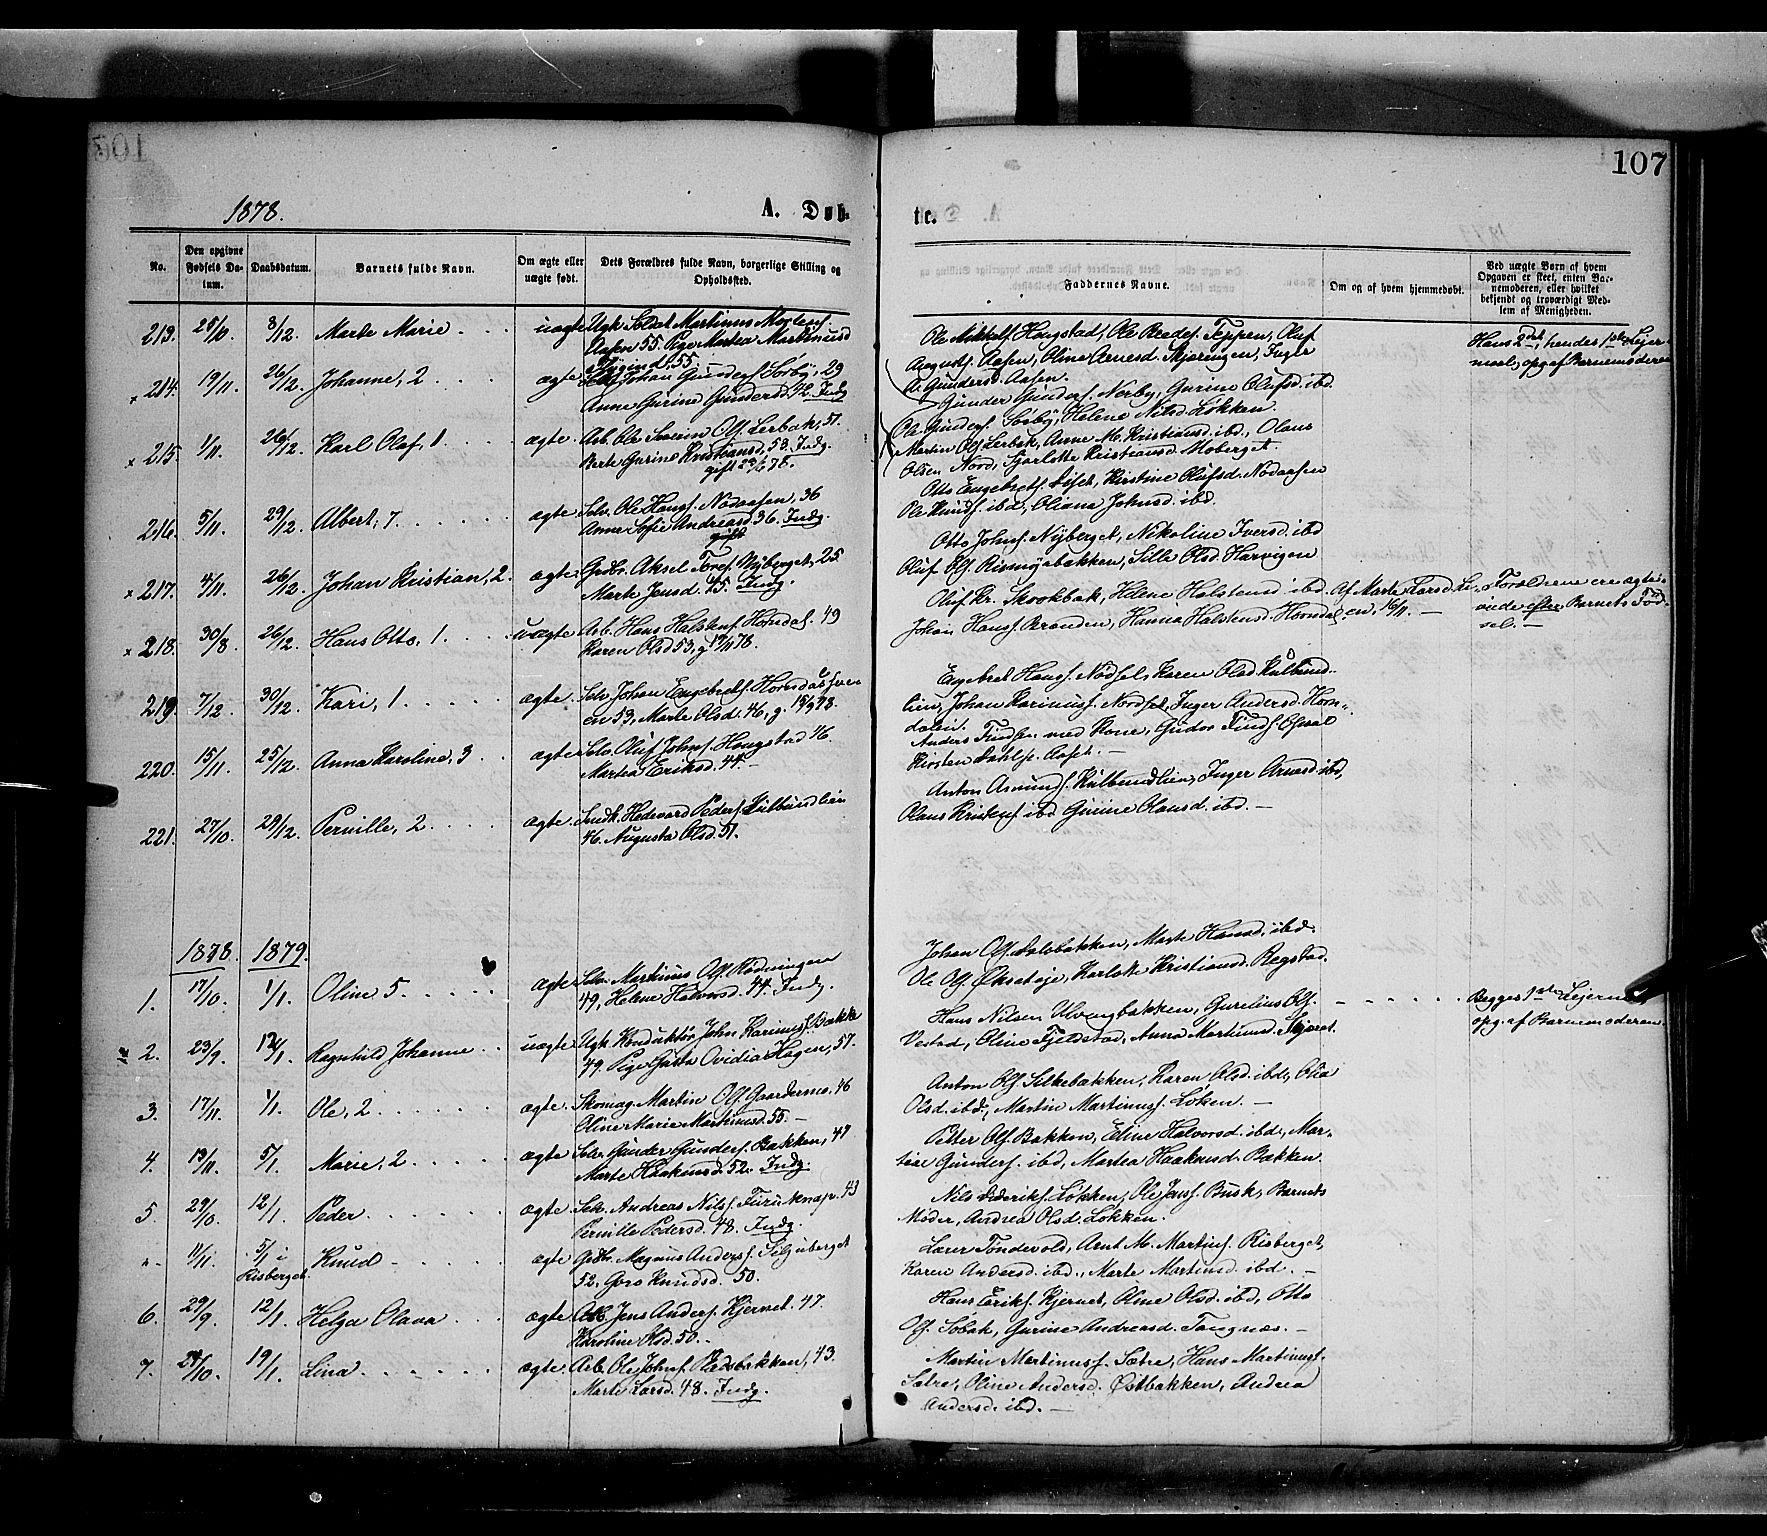 501
107
1878.
A. Døb-
te.
No.
Den opgivne Fødsels Da-tum.
Daabsdatum.
Barnets fulde Navn.
Om ægte eller uægte født.
Dets Forældres fulde Navn, borgerlige Stilling og Opholdssted.
Faddernes Navne.
Om og af hvem hjemmedøbt.
Ved uægte Børn af hvem Opgaven er skeet, enten Bar-nemoderen, eller hvilket bekjendt og troværdigt Med-lem af Menigheden.
213. 25/10 8/12 Marte Marie uægte Ugk. Soldat Martinus Mortens.
Aasen 55. Pige Martea Martinusd
55
Ole Mikkels. Haugstad, Ole Teppen, Oluf
Augusts. Aasen, Oline Arnesd. Skjæringen, Inger
Gundersd. Aasen.
Hans 2det, hendes 1ste Leier-
maal, opg. af Barnemoderen
x 214. 19/11 26/12 Johanne, 2 ægte Johan Gunders. Sørby, 29
Anne Gurine Gundersd. 42. Indg
Gunder Gunders. Nerby, Gurine Olufsd. ibd.
Ole Gunders. Sørby, Helene Nilsd. Løkken.
x 215. 1/11 26/12 Karl Olaf, 1 ægte. Arb. Ole Severin Ols. Lerbak, 51.
Berte Gurine Kristiansd, 53. Indg.
gift 78.
Martin Ols. Lerbak, Anne M. Kristiansd. ibd., Olaus
Olsen Nord, Sjarlotte Kristiansd. Moberget.
216. 5/11 29/12 Albert, 7. ægte Selv. Ole Hans. Nodaasen, 36
Anne Sofie Andreasd 36. Indg.
Otto Engebrets. Kirstine Olufsd. Nodaasen
Ole Knuds. ibd, Oliana Johnsd. ibd.
x 217. 4/11 26/12 Johan Kristian, 2. ægte Gdbr. Aksel Tores. Nyberget, 25
Marte Jensd. 45. Indg.
Otto Johns. Nyberget, Nikoline Iversd. ibd
Oluf Ols. Sille Olsd Harvigen
x 218. 30/8 26/12 Hans Otto, 1. uægte Arb. Hans Halstens. Horndal. 49
Karen Olsd 53, g 78.
Oluf Kr. Skookbak, Helene Halstensd. ibd.
Johan Hans. Branden, Hanna Halstensd. Horndalen, 16/11.
Af Marte Larsd.
Forældrene ere ægtevi-
ede efter Barnets Fød-
sel.
219. 7/12 30/12 Kari, 1 ægte Selv. Johan Engebrets. Horndals
en 53, Marte Olsd. 46, g. 78.
Engebret Hans. Nodsel, Karen Olsd Kulbund-
lien, Johan Karinius. Nordsel, Inger Andersd. Horn-
dalen.
220. 15/11 25/12 Anna Karoline, 3 ægte Selv. Oluf Johns. Haugstad 46.
Martea Eriksd. 44.
Anders med Kone, Gudor
Kirsten
221. 27/10 29/12 Pernille, 2 ægte. Indk. Hedevard Peders. Kulbundlien
46. Augusta Olsd. 51.
Anton Kulbundlien, Inger Arnesd. ibd,
Olaus ibd Gurine Olausd. ibd.
1878. 1879.
1. 17/10. 1/1. Oline 5. ægte Selv. Martinus Ols. Rødningen
49, Helene Halvorsd. 44. Indg.
Johan Ols. Dalebakken, Marte Hansd. ibd.
Ole Ols. Karlotte Kristiansd. Regstad.
2. 23/9. 12/1. Ragnhild Johanne uægte Ugk. Konduktør John Karinus. Bække
49. Pige Ovidia Hagen, 57.
Hans Nilsen Ulvangbakken, Gurelius Ols.
Vestad, Oline Fjeldstad, Anna Martinusd. Skjæret.
Begges 1ste Leiermaal
opg. af Barnemoderen.
3. 17/11. 1/1. Ole, 2. ægte. Skomag. Martin Ols. Gaardermo. 46
Oline Marie Martinusd. 55.
Anton Ols. Silkebækken, Karen Olsd. ibd, Olia
Olsd. ibd, Martin Martinus. Løken.
4. 13/11. 5/1. Marie, 2. ægte Selv. Gunder Gunders. Bakken, 47
Marte Haakensd. 52. Indg.
Petter Ols. Bakken, Eline Halvorsd. ibd, Mar-
tine Gunders. ibd, Martea Haakensd. Bakken.
5. 29/10. 12/1. Peder. ægte. Selv. Andreas Nils. Furuknap. 43
Pernille Pedersd. 48. Indg.
Nils Løkken, Ole Jens. Busk, Barnets
Moder, Andrea Olsd. Løkken.
" 11/11. 5/1 i Risberget. Knud ægte Gdbr. Magnus Anders. Seljuberget
52, Goro Knudsd. 50.
Lærer Tøndevold, Arnt M. Martins. Risberget,
Karen Andersd. ibd., Marte Martinsd. ibd.
6. 29/9. 12/1. Helga Olava ægte Arb. Jens Anders. Kjernet. 47.
Karoline Olsd. 50.
Hans Eriks. Kjernet, Oline Olsd. ibd, Otto
Ols. Søbak, Gurine Andreasd. Tangnæs.
7. 28/10. 19/1. Lina ægte. Arb. Ole Johns. Pladsbakken, 43.
Marte Larsd. 48. Indg.
Martin Martinus. Sætre, Hans Martinus.
Sætre, Oline Andersd. Østbakken, Andrea
Andersd. ibd.